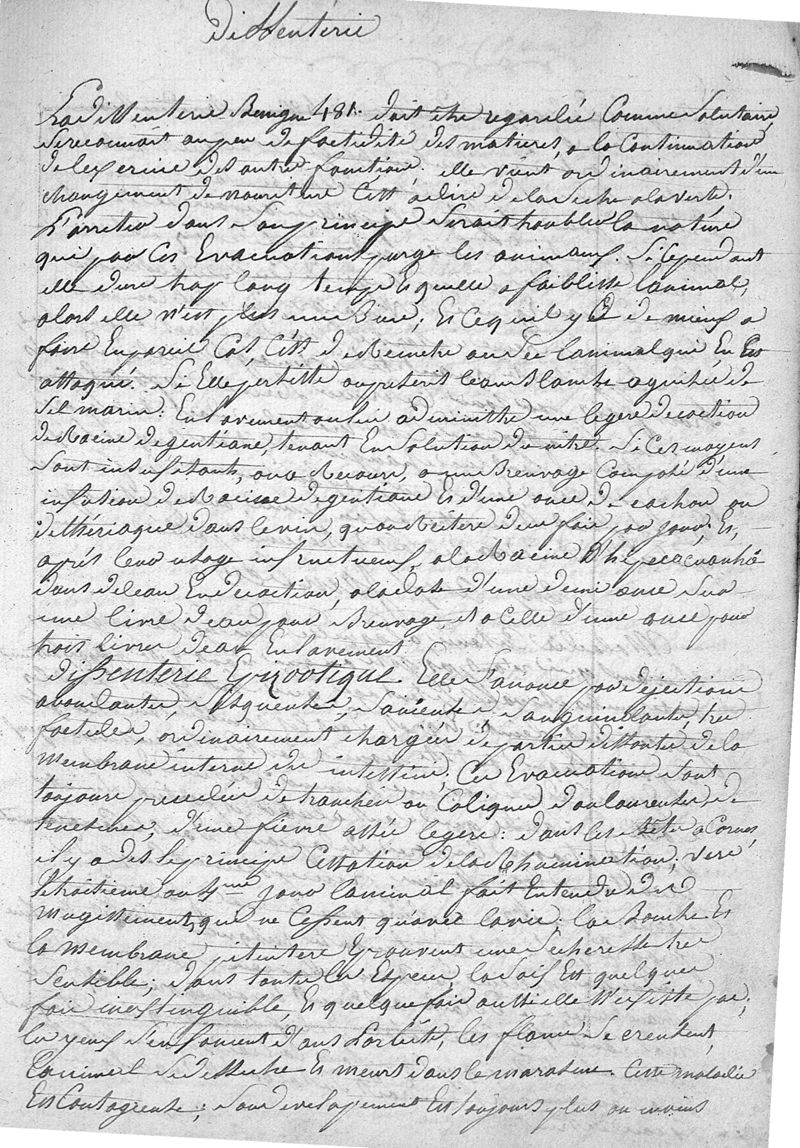 dissenterie
La dissenterie Benigne 481. doit etre regardée Comme Salutaire,
Se reconnait au peu de foetidité des matieres, a la Continuation
de lexercice des autres fonctions. elle vient ordinairement d'un
changement de nourriture C'est a dire de la seche a la verte.
L'arreter dans Son principe Serait troubler la nature
qui par Ces Evacuations purge les animaux. Si Cependant
elle dure trop long temps Et quelle affaiblisse lanimal,
alors elle n'est plus une Bure; Et Ce quil y a de mieux a
faire En pareil Cas, C'est de Remettre au Sec lanimal qui En Est
attaqué. Si Elle persiste on present leau Blanche aguisée de
Sel marin: En lavement on lui administre une legere decoction
de Racine de gentiane, tenant En Solution du nitre. Si Ces moyens
Sont insufisants, on a Recours, a un Breuvage Composé d'une
infusion de Racine de gentiane Et d'une once de cachou ou
de thériaque dans le vin, quon Reitere deux fois par jour; Et,
aprés leur usage infructueux, a la Racine d'hipecacuanha
dans de leau En decoction, a la dose d'une demi once Sur
une livre deau pour Breuvage, et a Celle d'une once pour
trois livres deau En lavement.
dissenterie Epizootique. Elle Sanonce par dejections
abondantes, frequentes, Sanguinolentes, tres
foetides, ordinairement chargées de parties dissoutes de la
membrane interne des intestins; Ces Evacuations Sont
toujours precedées de tranchées ou Coliques douloureuses, de
tenesmes, d'une fievre assés legere: dans les Bêtes a Cornes,
il y a dès le principe Cessation de la Rhumination; vers
le troisieme ou 4me jour lanimal fait Entendre des
mugissements, qui ne Cessent qu'avec la vie: la Bouche Et
la membrane pituitere Eprouvent une Secheresse tres
Sensible; dans toutes les Especes la Soif Est quelques
fois inextinguible, Et quelque fois aussi elle N'existe pas;
les yeux S'enfoncent dans l'orbite, les flancs Se creusent,
lanimal Se desseche Et meurt dans le marasme. Cette maladie
Est Contagieuse; Son developement Est toujours plus ou moins